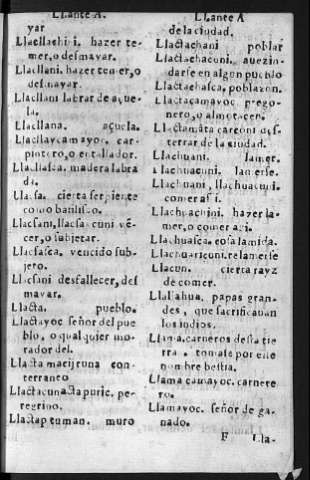 Llante A.
yar
Llacllachini. hazer te-
mer, o desmayar.
Llacllani. hazer temer, o
desmayar.
Llacllani labrar de açue-
la.
Llacllana. açuela.
Llacllaycamayoc. car-
pintero, o entallador.
Llacllasca. madera labra
da.
Llacsa. cierta serpiente
como basilisco.
Llacsani, llacsacuni vẽ-
cer, o subjetar.
Llacsasca. vencido sub-
jeto.
Llacsani desfallecer, des
mayar.
Llacta. pueblo.
Llactayoc señor del pue
blo, o qualquier mo-
rador del.
Llacta macijruna con-
terraneo
Llactacunacta puric. pe-
regrino.
Llactap tuman. muro
Llante A
de la ciudad.
Llactachani poblar
Llactachacuni. auezin-
darse en algun pueblo
Llactachasca, poblazon.
Llactacamayoc prego-
nero, o almotacen.
Llactamãta carconi des-
terrar de la ciudad.
Llachuani. lamer.
Llachuacuni. lamerse.
Llachuani, llachuacuni.
comer assi.
Llachuachini. hazer la-
mer, o comer assi.
Llachuasca. cosa lamida.
Llachuaricuni. relamerse
Llacun. cierta rayz
de comer.
Llallahua. papas gran-
des, que sacrificauan
los indios.
Llama. carneros desta tie
rra. tomase por este
nonbre bestia.
Llama camayoc. carnere
ro.
Llamayoc. señor de ga-
nado.
F Lla-